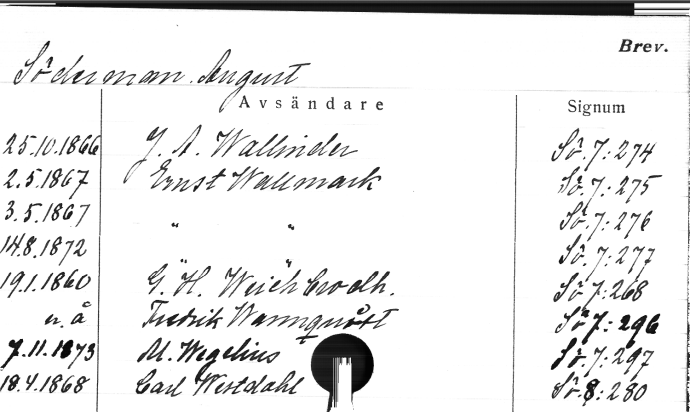 Brev.
Söderman. August
Avsändare Signum
25.10.1866 J. A. Wallinder Sö.7:274
2.5.1867 Ernst Wallmark Sö.7:275
3.5.1867 " " Sö.7:276
14.8.1872 " " Sö.7:277
19.1.1860 G. H. Sö 7:268
n.å Fredrik Warnquist Sö 7:296
7.11.1873 M. Wegelius Sö.7:297
18.4.1868 Carl Westdahl Sö.8:280